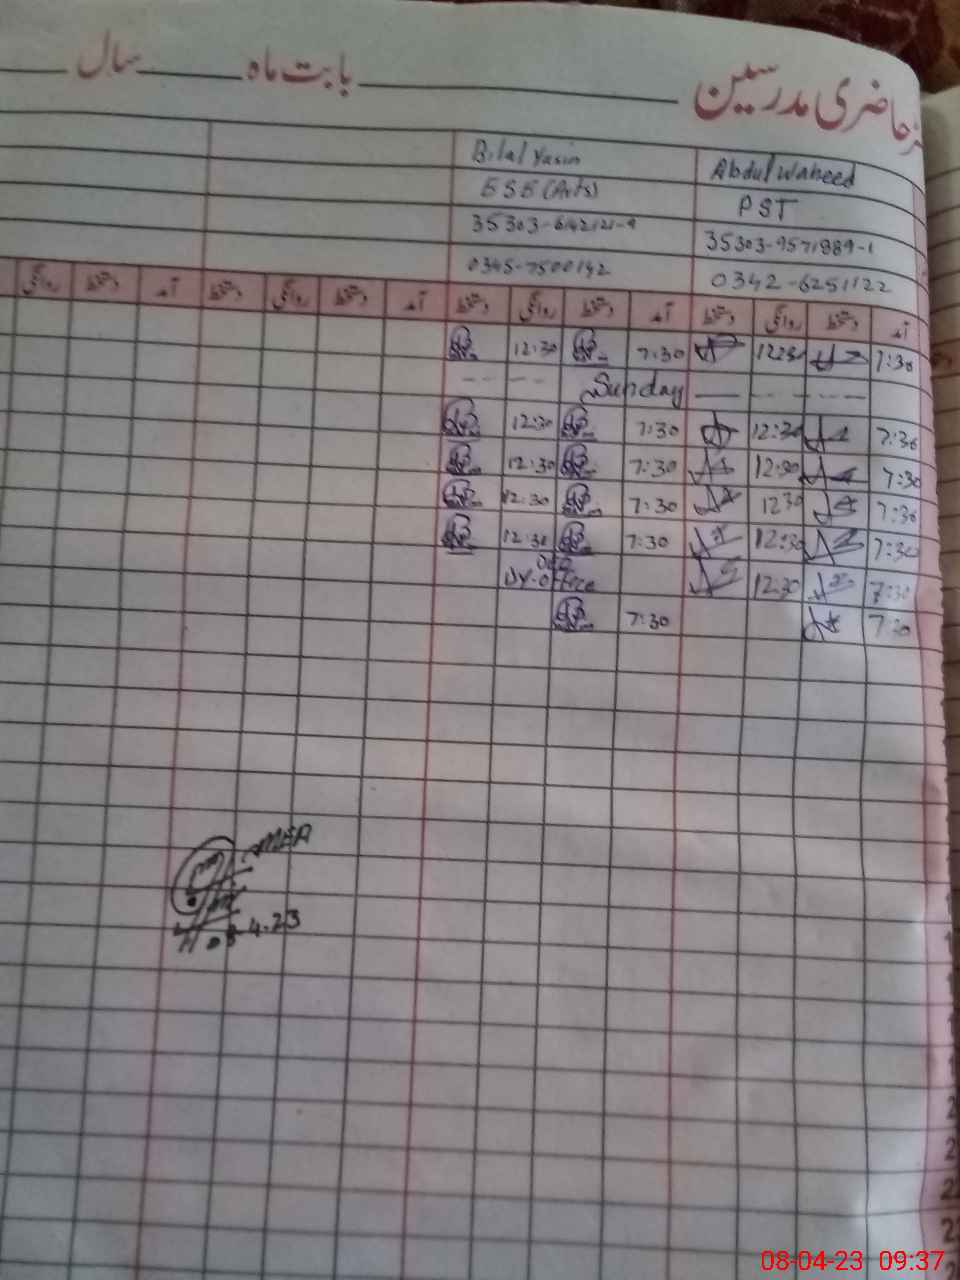 حاضری مدرسین بابت ماہ سال
Abdul Waheed Bilal Yasin
PST ESE (Arts)
35303-9571889-1
0342-6251122 0345-7500142
آمد دستخط روانگی دستخط آمد دستخط روانگی دستخط آمد دستخط روانگی دستخط آمد دستخط روانگی
7:30 12:30 7:30 12:30
Sunday
7:30 12:30 7:30 12:30
7:30 12:30 7:30 12:30
7:30 12:30 7:30 12:30
7:30 12:30 7:30 12:30
7:30 12:30 Dy-Office
7:30 7:30
MEA
08-04-23 09:37